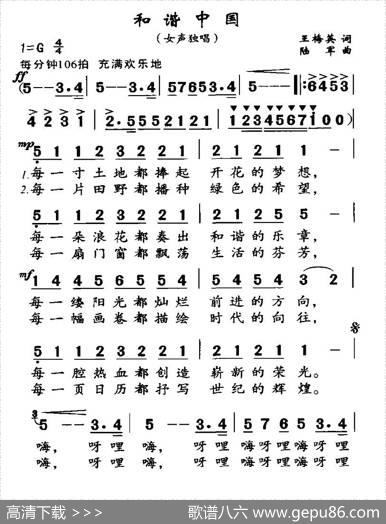 和谐中国
(女声独唱)
1=G 4/4
王梅英 词
陆军 曲
每分钟106拍 充满欢乐地
ff (5 - - 3·4 | 5 - - 3·4 | 57653·4 | 5 - - 5 |: 6453
4 2 3 1 | 2·5552121 | 1234567100) |
mp 5 1 1 2 3 2 2 1 | 2 1 2 1 1 - |
1.每一寸土地都捧起 开花的梦想,
2.每一片田野都播种 绿色的希望,
5 1 1 2 3 2 2 1 | 2 1 2 5 5 - |
每一朵浪花都奏出 和谐的乐章,
每一扇门窗都飘荡 生活的芬芳,
mf 1 4 4 5 6 5 5 4 | 5 4 5 4 3 2 |
每一缕阳光都灿烂 前进的方向,
每一幅画卷都描绘 时代的向往,
5 1 1 2 3 2 2 1 | 2 1 2 1 1 - |
每一腔热血都创造 崭新的荣光。
每一页日历都抒写 世纪的辉煌。
5 - - 3·4 | 5 - - 3·4 | 5 7 6 5 3·4 |
嗨, 呀哩 嗨, 呀哩 嗨呀哩嗨呀哩
嗨, 呀哩 嗨, 呀哩 嗨呀哩嗨呀哩
高清下载 >>>
歌谱八六 www.gepu86.com